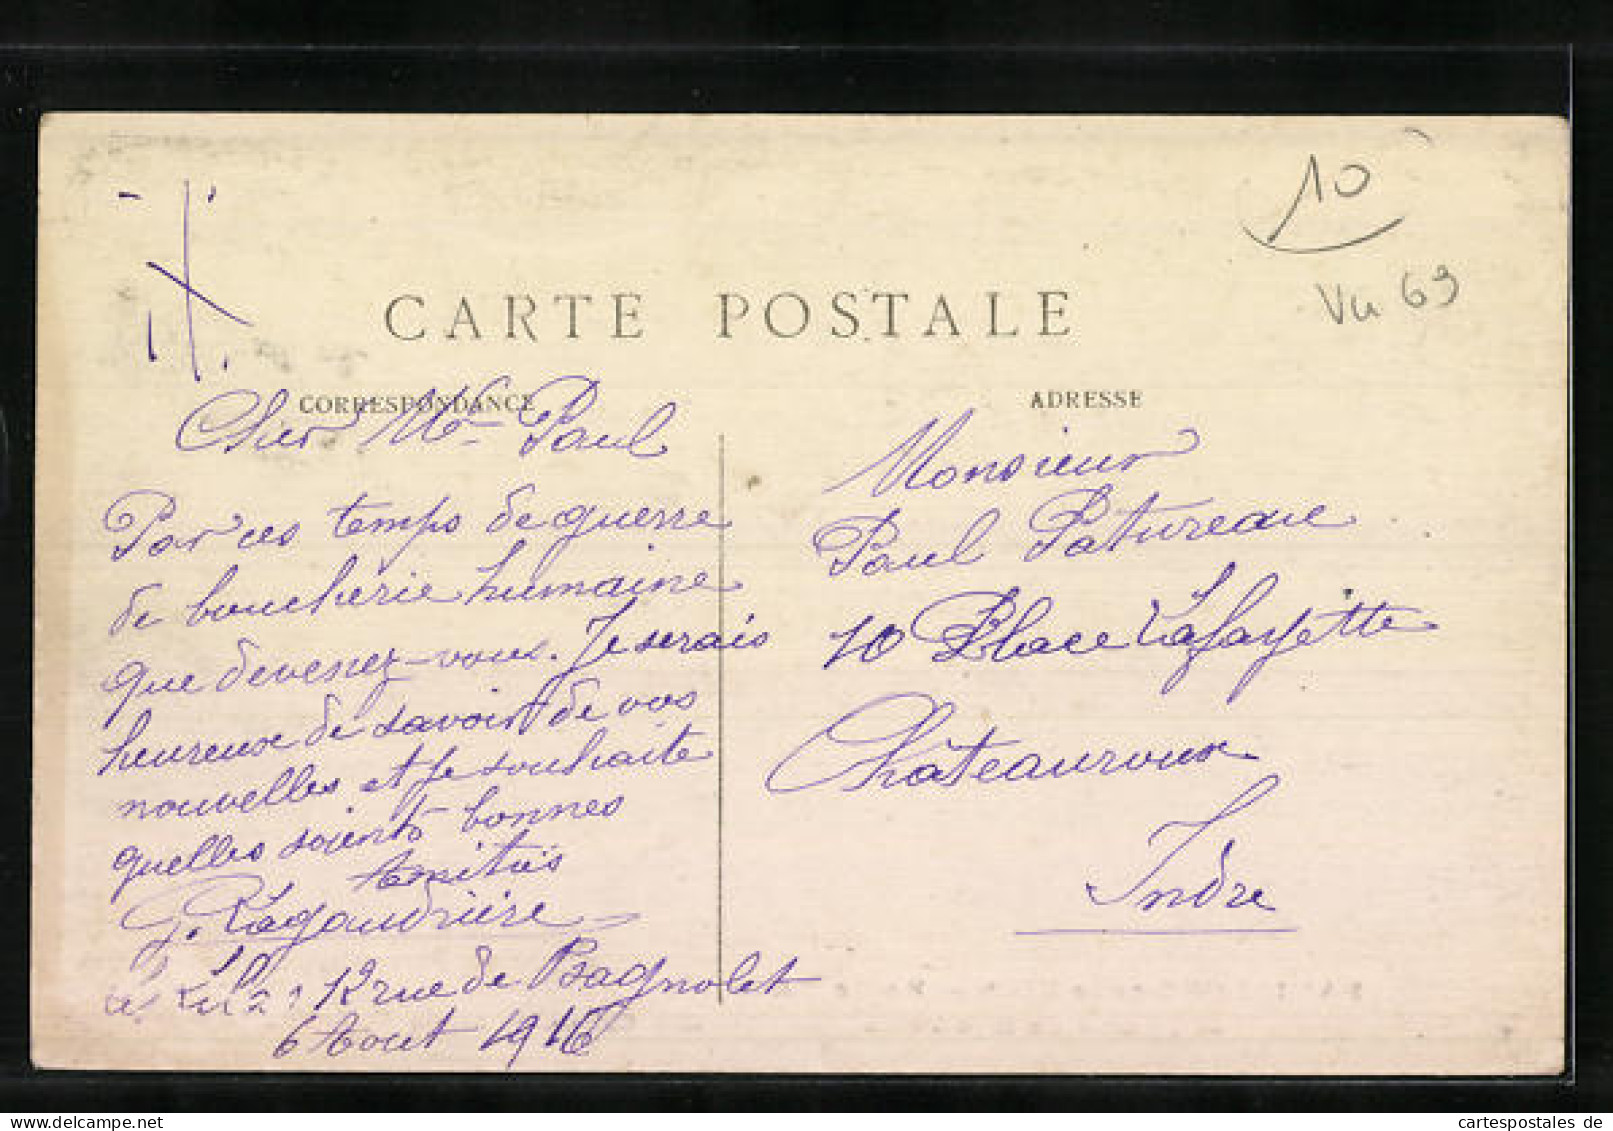 10
Vu 69
CARTE POSTALE
CORRESPONDANCE
Cher Mr Paul
Par ces temps de guerre
de boucherie humaine
que devenez-vous. Je serais
heureux de savoir de vos
nouvelles et je souhaite
quelles soients bonnes
Amitiés
G. Lagaudrière
12 rue de Bagnolet
6 Aout 1916
ADRESSE
Monsieur
Paul Patureau
10 Place Lafayette
Châteauroux
Indre
cartespostales de